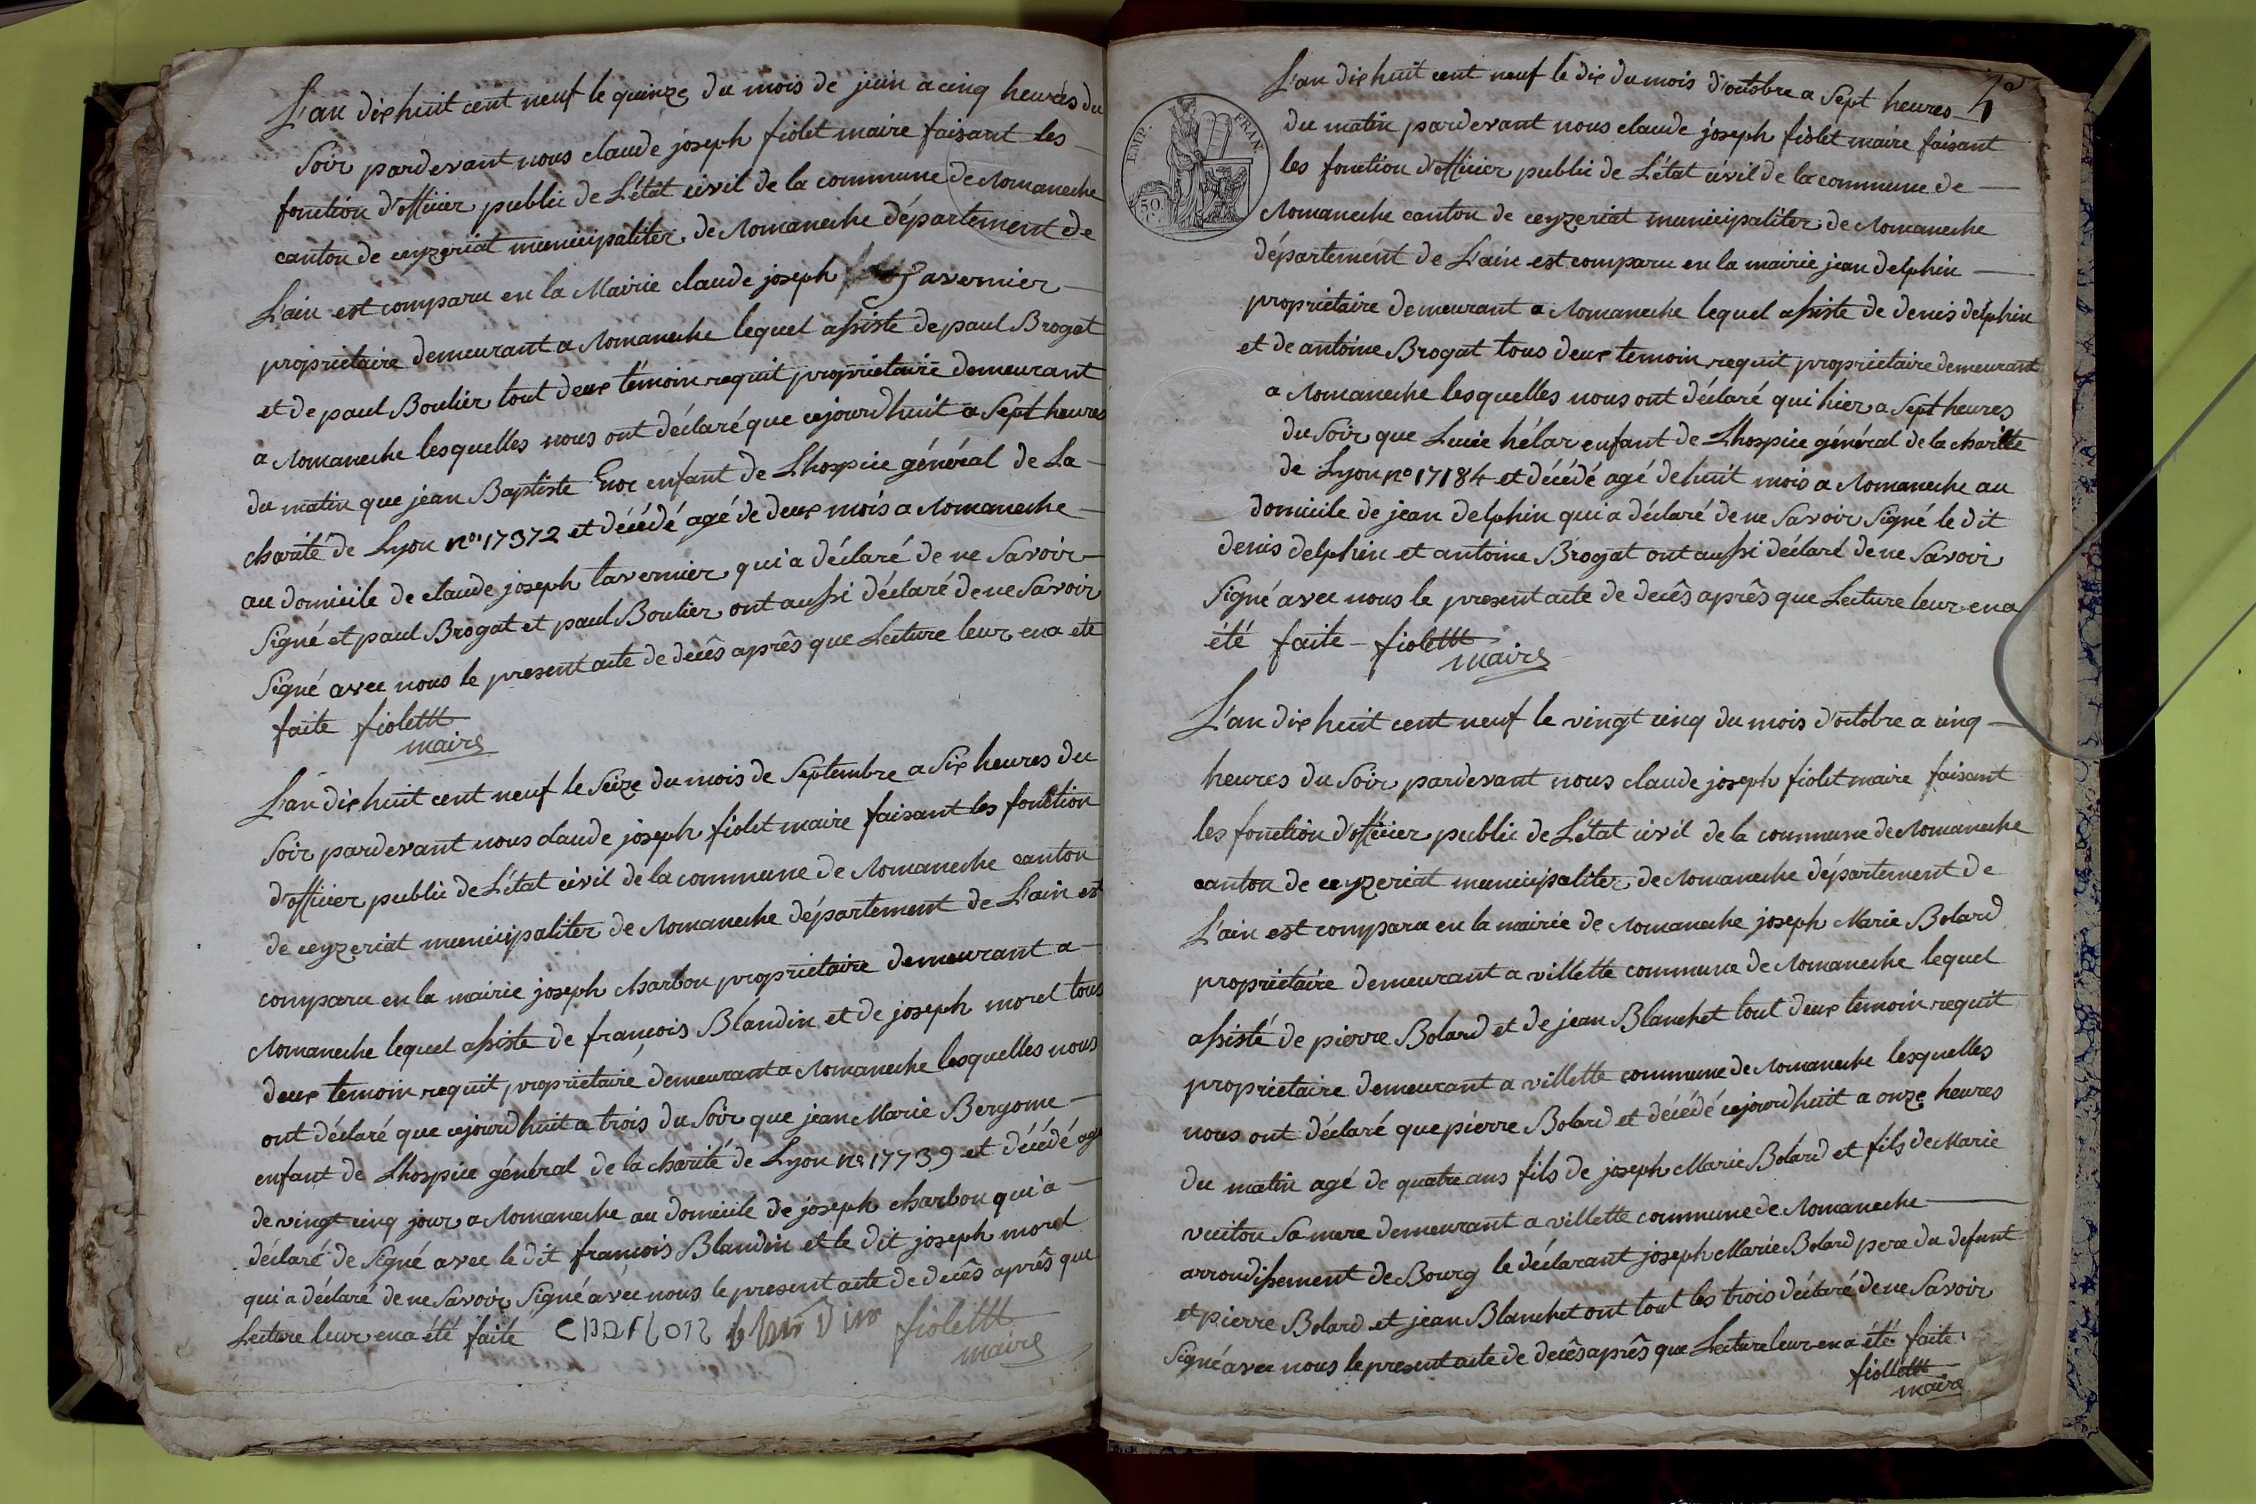 L'an dix huit cent neuf le quinze du mois de juin a cinq heures du
Soir pardevant nous claude joseph fiolet maire faisant les
fonction d'officier public de L'état civil de la commune de Romaneche
canton de ceyzeriat municipaliter de Romaneche département de
L'ain est comparu en la Mairie claude joseph Tavernier
proprietaire demeurant a Romaneche lequel assiste de paul Brogat
et de paul Boulier tout deux témoin requit proprietaire demeurant
a Romaneche lesquelles nous ont déclaré que cejourdhuit a Sept heures
du matin que jean Baptiste Enoc enfant de Lhospice général de La
charité de Lyon no 17372 et décédé agé de deux mois a Romaneche
au domicile de claude joseph tavernier qui a déclaré de ne Savoir
Signé et paul Brogat et paul Boulier ont aussi déclaré de ne Savoir
Signé avec nous le present acte de decês aprês que Lecture leur en a eté
faite fiolettt
maire
L'an dix huit cent neuf le Seize du mois de Septembre a Six heures du
Soir pardevant nous claude joseph fiolet maire faisant les fonction
d'officier public de L'état civil de la commune de Romaneche canton
de ceyzeriat municipaliter de Romaneche département de L'ain est
comparu en la mairie joseph charbon proprietaire demeurant a
Romaneche lequel assiste de francois Blandin et de joseph morel tous
deux temoin requit proprietaire demeurant a Romaneche lesquelles nous
ont déclaré que cejourdhuit a trois du Soir que jean Marie Bergome
enfant de Lhospice général de la charité de Lyon no 17739 et décédé agé
de vingt cinq jour a Romaneche au domicile de joseph charbon qui a
déclaré de Signé avec le dit francois Blandin et le dit joseph morel
qui a déclaré de ne Savoir Signé avec nous le present acte de decês aprês que
Lecture leur en a été faite charbon blandin fiolettt
maire
4e
L'an dix huit cent neuf le dix du mois d'octobre a Sept heures
du matin pardevant nous claude joseph fiolet maire faisant
les fonction d'officier public de L'état civil de la commune de
Romaneche canton de ceyzeriat municipaliter de Romaneche
département de L'ain est comparu en la mairie jean delphin
proprietaire demeurant a Romaneche lequel assiste de denis delphin
et de antoine Brogat tous deux temoin requit proprietaire demeurant
a Romaneche lesquelles nous ont déclaré qui hier a Sept heures
du Soir que Lucie hélar enfant de Lhospice général de la charitte
de Lyon no 17184 et décédé agé de huit mois a Romaneche au
domicile de jean delphin qui a déclaré de ne Savoir Signé le dit
denis delphin et antoine Brogat ont aussi déclaré de ne Savoir
Signé avec nous le present acte de decês aprês que Lecture leur en a
été faite fiolettt
maire
EMP. FRAN.
50 C.
L'an dix huit cent neuf le vingt cinq du mois d'octobre a cinq
heures du Soir pardevant nous claude joseph fiolet maire faisant
les fonction d'officier public de L'état civil de la commune de Romaneche
canton de ceyzeriat municipaliter de Romaneche département de
L'ain est comparu en la mairie de Romaneche joseph Marie Bolard
proprietaire demeurant a villette commune de Romaneche lequel
assisté de pierre Bolard et de jean Blanchet tout deux temoin requit
proprietaire demeurant a villette commune de Romaneche lesquelles
nous ont déclaré que pierre Bolard et décédé cejourdhuit a onze heures
du matin agé de quatre ans fils de joseph Marie Bolard et fils de Marie
vuiton Sa mere demeurant a villette commune de Romaneche
arrondissement de Bourg le déclarant joseph Marie Bolard pere du defunt
et pierre Bolard et jean Blanchet ont tout les trois déclaré de ne Savoir
Signé avec nous le present acte de decês aprês que Lecture leur en a été faite
fiolettt
maire